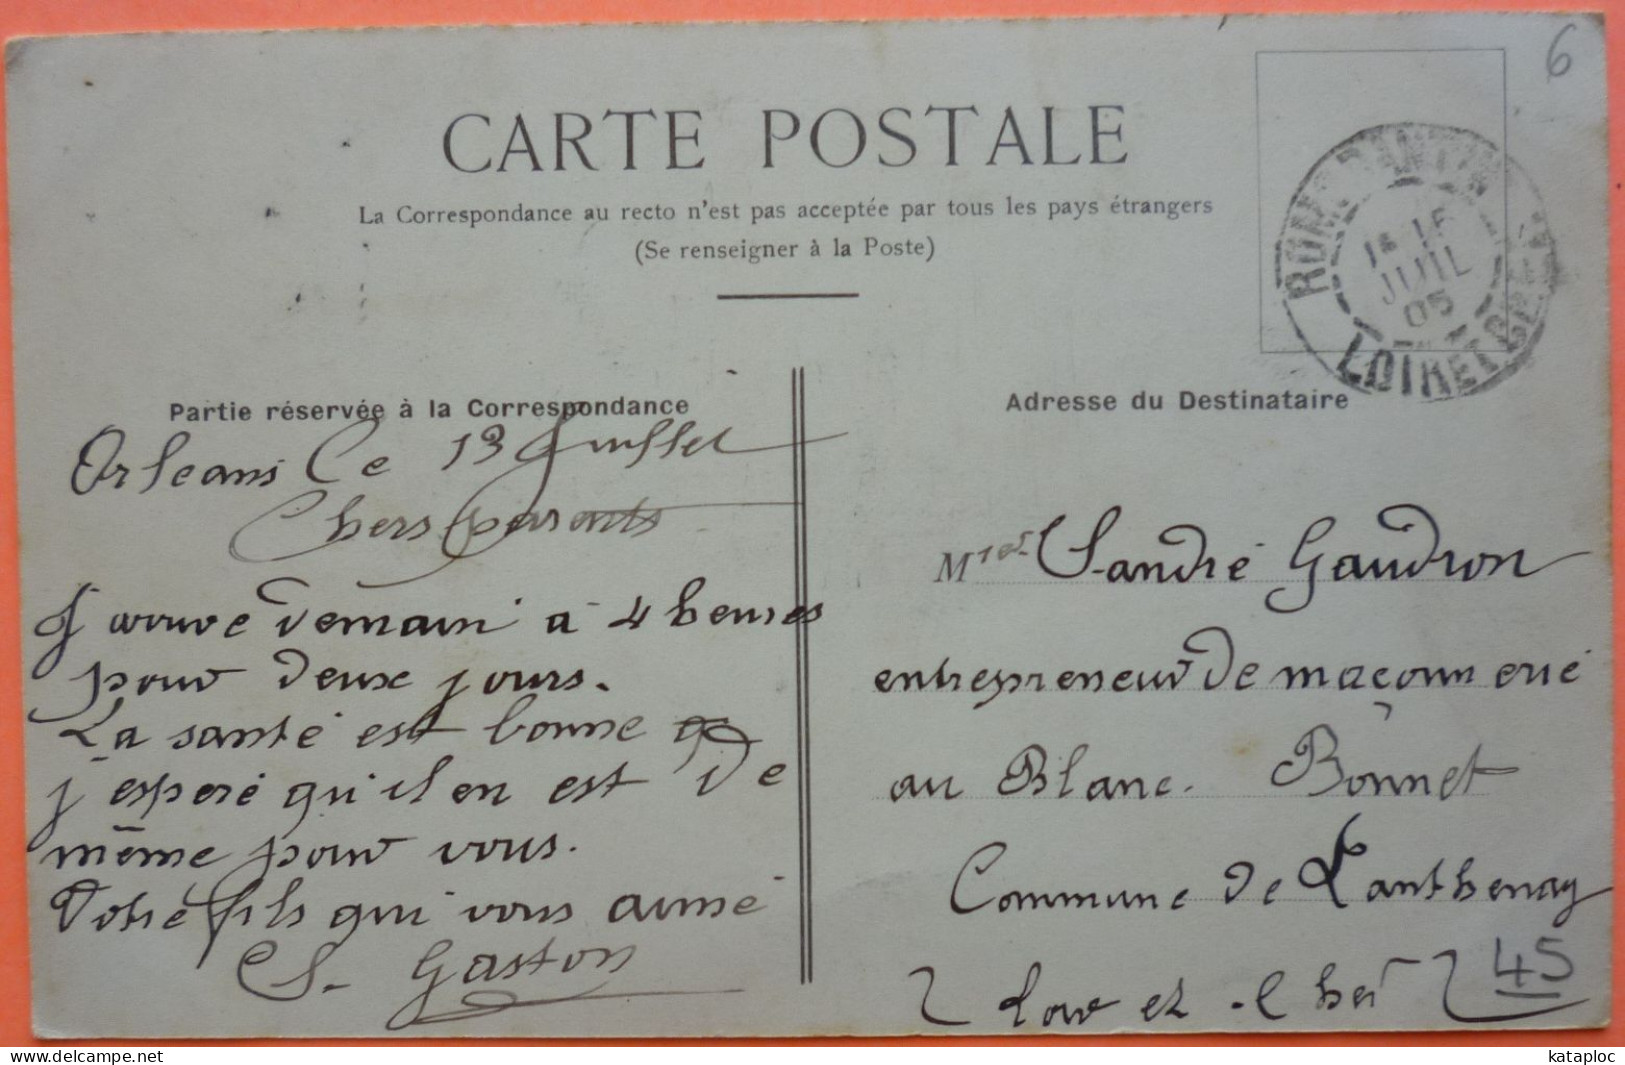 6
CARTE POSTALE
La Correspondance au recto n'est pas acceptée par tous les pays étrangers
(Se renseigner à la Poste)
ROMORANTIN
15
JUIL
05
LOIR ET CHER
Partie réservée à la Correspondance
Orleans le 13 Juillet
Chers parents
J'arrive demain à 4 heures
pour deux jours.
La santé est bonne
j'esperé qu'il en est de
même pour vous.
Votre fils qui vous aime
S. Gaston
Adresse du Destinataire
M Sandré Gaudron
entrepreneur de maçonnerie
au Blanc. Bonnet
Commune de Lanthenay
Loir et Cher
45
kataploc